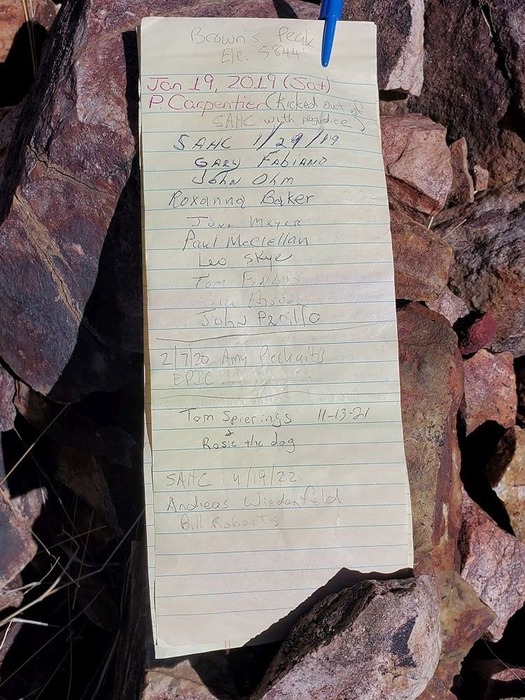 Brown's Peak
Ele. 5844
Jan 19, 2019 (Sat)
P Carpentier (Kicked out of
SAHC with prejudice)
SAHC 1/29/19
GARY FABIANO
John Ohm
Roxanna Baker
June Mayer
Paul McClellan
Leo Skye
Tom
John Panillo
2/7/20 Amy
EPIC
Tom Spierings 11-13-21
&
Rosie the dog
SAHC 4/19/22
Andreas Wiedenfeld
Bill Roberts